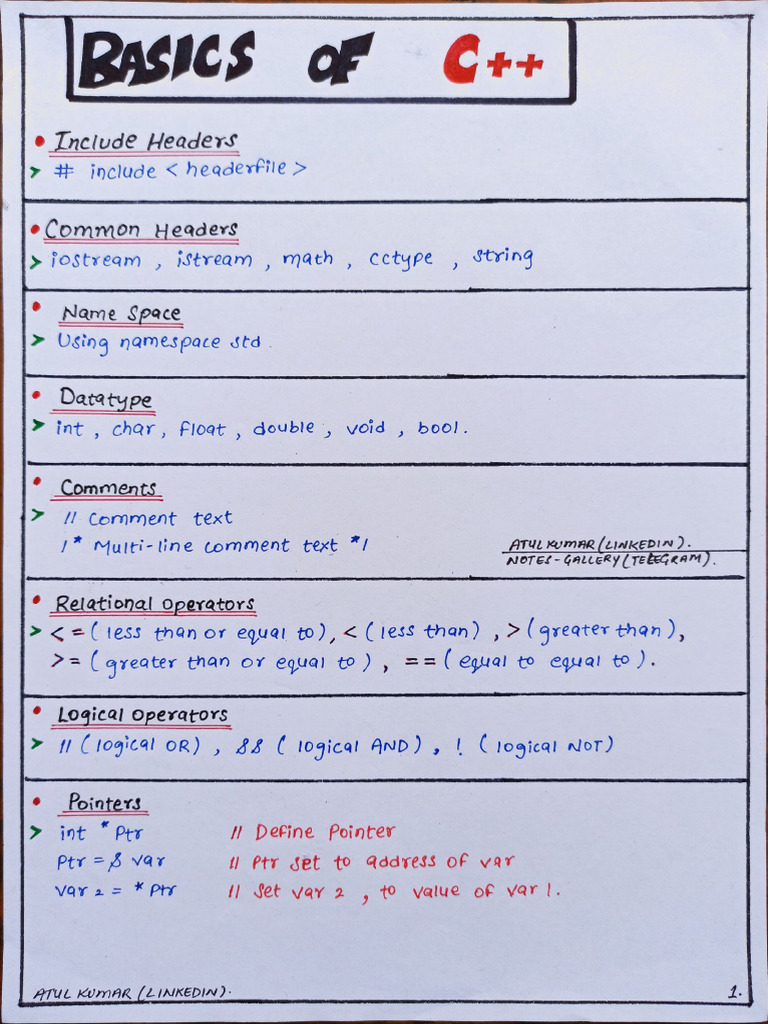 BASICS OF C++
• Include Headers
> # include < headerfile >
• Common Headers
> iostream , istream , math , cctype , string
• Name Space
> Using namespace std .
• Datatype
> int , char , float , double , void , bool .
• Comments
> // Comment text
/* Multi-line comment text */
ATUL KUMAR (LINKEDIN).
NOTES-GALLERY (TELEGRAM).
• Relational Operators
> < = ( less than or equal to ), < ( less than ) , > ( greater than ),
>= ( greater than or equal to ) , == ( equal to equal to ) .
• Logical Operators
> || ( logical OR ) , && ( logical AND ) , ! ( logical NOT )
• Pointers
> int * Ptr // Define Pointer
Ptr = & var // Ptr set to address of var
Var 2 = * Ptr // Set var 2 , to value of var 1.
ATUL KUMAR (LINKEDIN).
1.